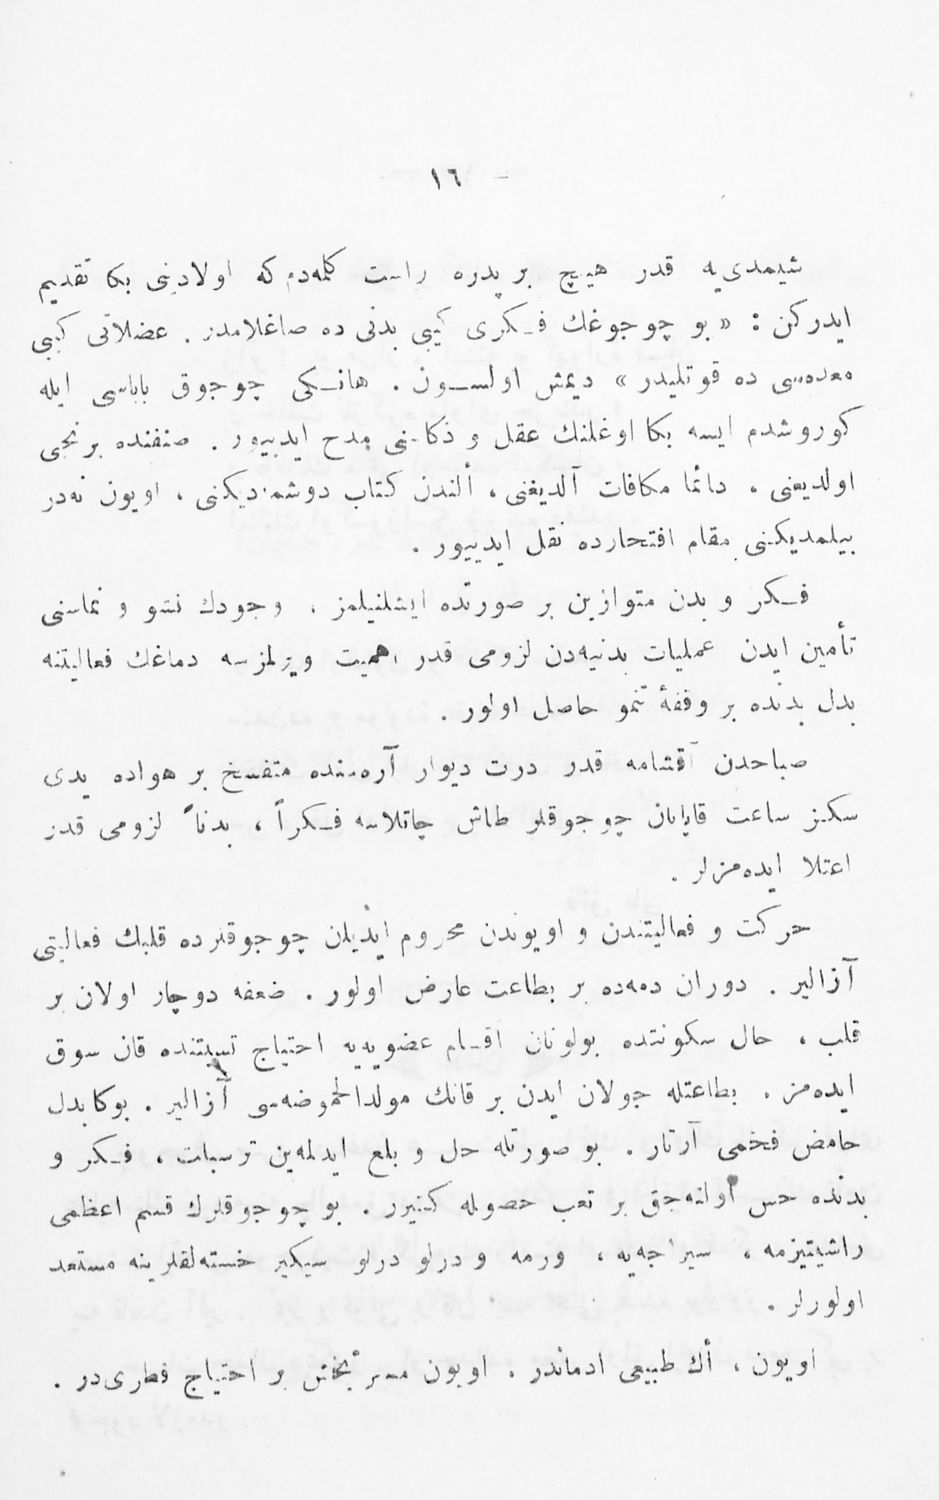 — ١٦ —
شیمدی‌یه قدر هیچ بر پدره راست كلمه‌دم كه اولادینی بكا تقدیم
ایدركن : « بو چوجوغك فـكری كیبی بدنی ده صاغلامدر . عضلاتی كیبی
معده‌سی ده قوتلیدر » دیمش اولسـون . هانـكی چوجوق باباسی ایله
كوروشدم ایسه بكا اوغلنك عقل و ذكاسنی مدح ایدییور . صنفنده برنجی
اولدیغنی ، دائما مكافات آلدیغنی ، ألندن كتاب دوشمه‌دیكنی ، اویون نه‌در
بیلمدیكنی مقام افتخارده نقل ایدییور .
فـكر و بدن متوازین بر صورتده ایشلنیلمز ، وجودك نشو و نماسنی
تأمین ایدن عملیات بدنیه‌دن لزومی قدر اهمیت ویرلمزسه دماغك فعالیتنه
بدل بدنده بر وقفهٔ نمو حاصل اولور .
صباحدن آقشامه قدر درت دیوار آره‌سنده متفسخ بر هواده یدی
سكز ساعت قاپانان چوجوقلر طاش چاتلاسه فـكراً ، بدناً لزومی قدر
اعتلا ایده‌مزلر .
حركت و فعالیتندن و اویوندن محروم ایدیلن چوجوقلرده قلبك فعالیتی
آزالیر . دوران دمه‌ده بر بطاعت عارض اولور . ضعفه دوچار اولان بر
قلب ، حال سكونتده بولونان اقسام عضویه‌یه احتیاج نسبتنده قان سوق
ایده‌مز . بطاعتله جولان ایدن بر قانك مولدالحموضه‌سی آزالیر . بوكا بدل
حامض فحمی آرتار . بو صورتله حل و بلع ایدلمه‌ین ترسبات ، فـكر و
بدنده حس اولنه‌جق بر تعب حصوله كتیرر . بو چوجوقلرك قسم اعظمی
راشیتیزمه ، سیراجه‌یه ، ورمه و درلو درلو سیكیر خسته‌لقلرینه مستعد
اولورلر .
اویون ، أك طبیعی ادماندر . اویون مسرتبخش بر احتیاج فطری‌در .